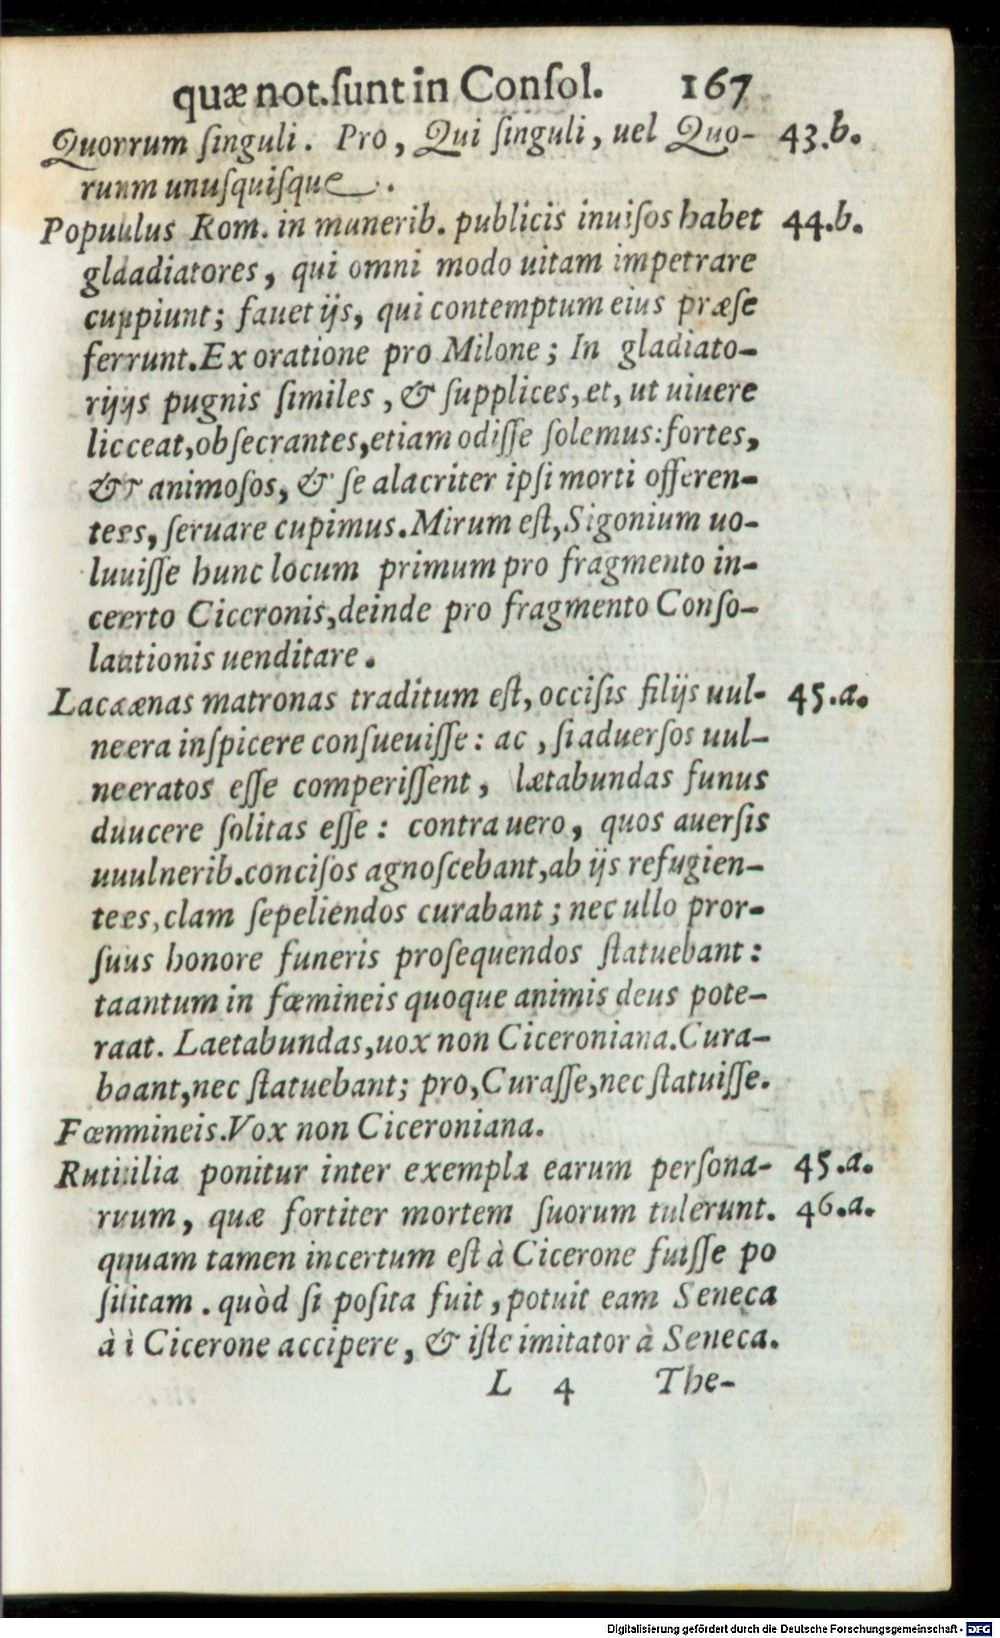 quæ not. ſunt in Conſol. 167
Quorrum ſinguli. Pro, Qui ſinguli, uel Quo- 43.b.
ruum unuſquiſque.
Popuulus Rom. in munerib. publicis inuiſos habet 44.b.
glaadiatores, qui omni modo uitam impetrare
cuppiunt; fauet ijs, qui contemptum eius præ ſe
ferrunt. Ex oratione pro Milone; In gladiato-
rijijs pugnis ſimiles, & ſupplices, et, ut uiuere
licceat, obſecrantes, etiam odiſſe ſolemus: fortes,
&r animoſos, & ſe alacriter ipſi morti offeren-
tees, ſeruare cupimus. Mirum eſt, Sigonium uo-
luuiſſe hunc locum primum pro fragmento in-
ceerto Ciceronis, deinde pro fragmento Conſo-
laationis uenditare.
Lacææenas matronas traditum eſt, occiſis filijs uul- 45.a.
neera inſpicere conſueuiſſe: ac, ſi aduerſos uul-
neeratos eſſe comperiſſent, lætabundas funus
duucere ſolitas eſſe: contra uero, quos auerſis
uuulnerib. conciſos agnoſcebant, ab ijs refugien-
tees, clam ſepeliendos curabant; nec ullo pror-
ſuus honore funeris proſequendos ſtatuebant:
taantum in fœmineis quoque animis deus pote-
raat. Laetabundas, uox non Ciceroniana. Cura-
baant, nec ſtatuebant; pro, Curaſſe, nec ſtatuiſſe.
Fœmmineis. Vox non Ciceroniana.
Rutiilia ponitur inter exempla earum perſona- 45.a.
ruum, quæ fortiter mortem ſuorum tulerunt. 46.a.
quuam tamen incertum eſt à Cicerone fuiſſe po
ſiitam. quòd ſi poſita fuit, potuit eam Seneca
à ì Cicerone accipere, & iſte imitator à Seneca.
L 4 The-
Digitalisierung gefördert durch die Deutsche Forschungsgemeinschaft - DFG